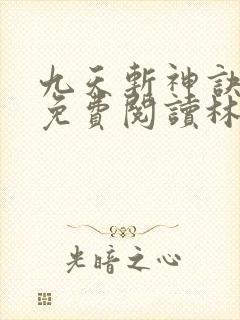 九天斬神訣
免費閱讀林
光暗之心